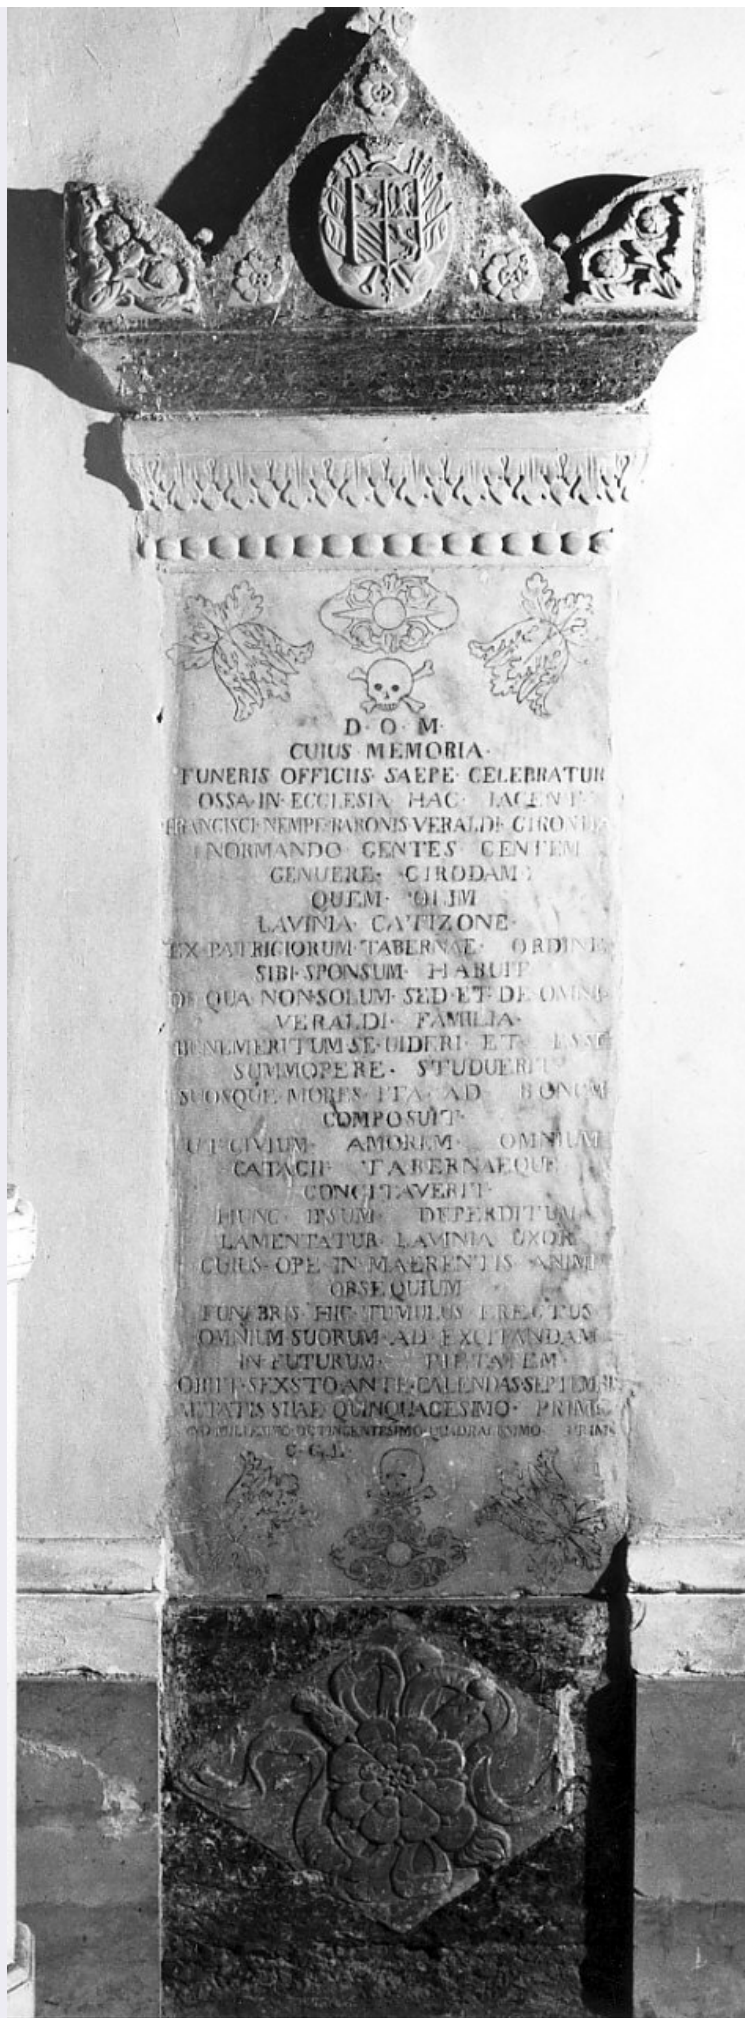 D·O·M·
CUIUS MEMORIA·
FUNERIS OFFICIIS· SAEPE· CELEBRATUR
OSSA·IN·ECCLESIA HAC· IACENT·
FRANCISCI·NEMPE·BARONIS VERALDI·
NORMANDO GENTES GENTEM
GENUERE·
QUEM· OLIM
LAVINIA· CATIZONE·
EX·PATRICIORUM·TABERNAE· ORDINE
SIBI·SPONSUM· HABUIT
DE QUA NON·SOLUM· SED·ET·DE·OMNI·
VERALDI· FAMILIA·
BENEMERITUM·SE·UIDERI· ET· ESSE
SUMMOPERE· STUDUERIT
SUOSQUE·MORES·ITA·AD· BONUM
COMPOSUIT·
UT·CIVIUM· AMOREM· OMNIUM
CATACII· TABERNAEQUE
CONCITAVERIT·
HUNC· IPSUM· DEPERDITUM
LAMENTATUR·LAVINIA UXOR
CUIUS·OPE·IN·MAERENTIS·ANIMI
OBSEQUIUM
FUNEBRIS·HIC·TUMULUS ERECTUS
OMNIUM SUORUM·AD·EXCITANDAM
IN·FUTURUM· PIETATEM
OBIIT·SEXSTO·ANTE·CALENDAS·SEPTEMB
AETATIS SUAE QUINQUAGESIMO· PRIMO
MILLESIMO·OCTINGENTESIMO·QUADRAGESIMO· PRIMO